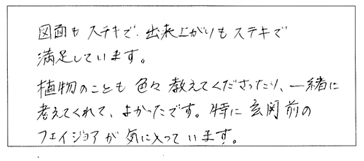 図面もステキで、出来上がりもステキで
満足しています。
植物のことも色々教えてくださったり、一緒に
考えてくれて、よかったです。特に玄関前の
フェイジョアが気に入っています。